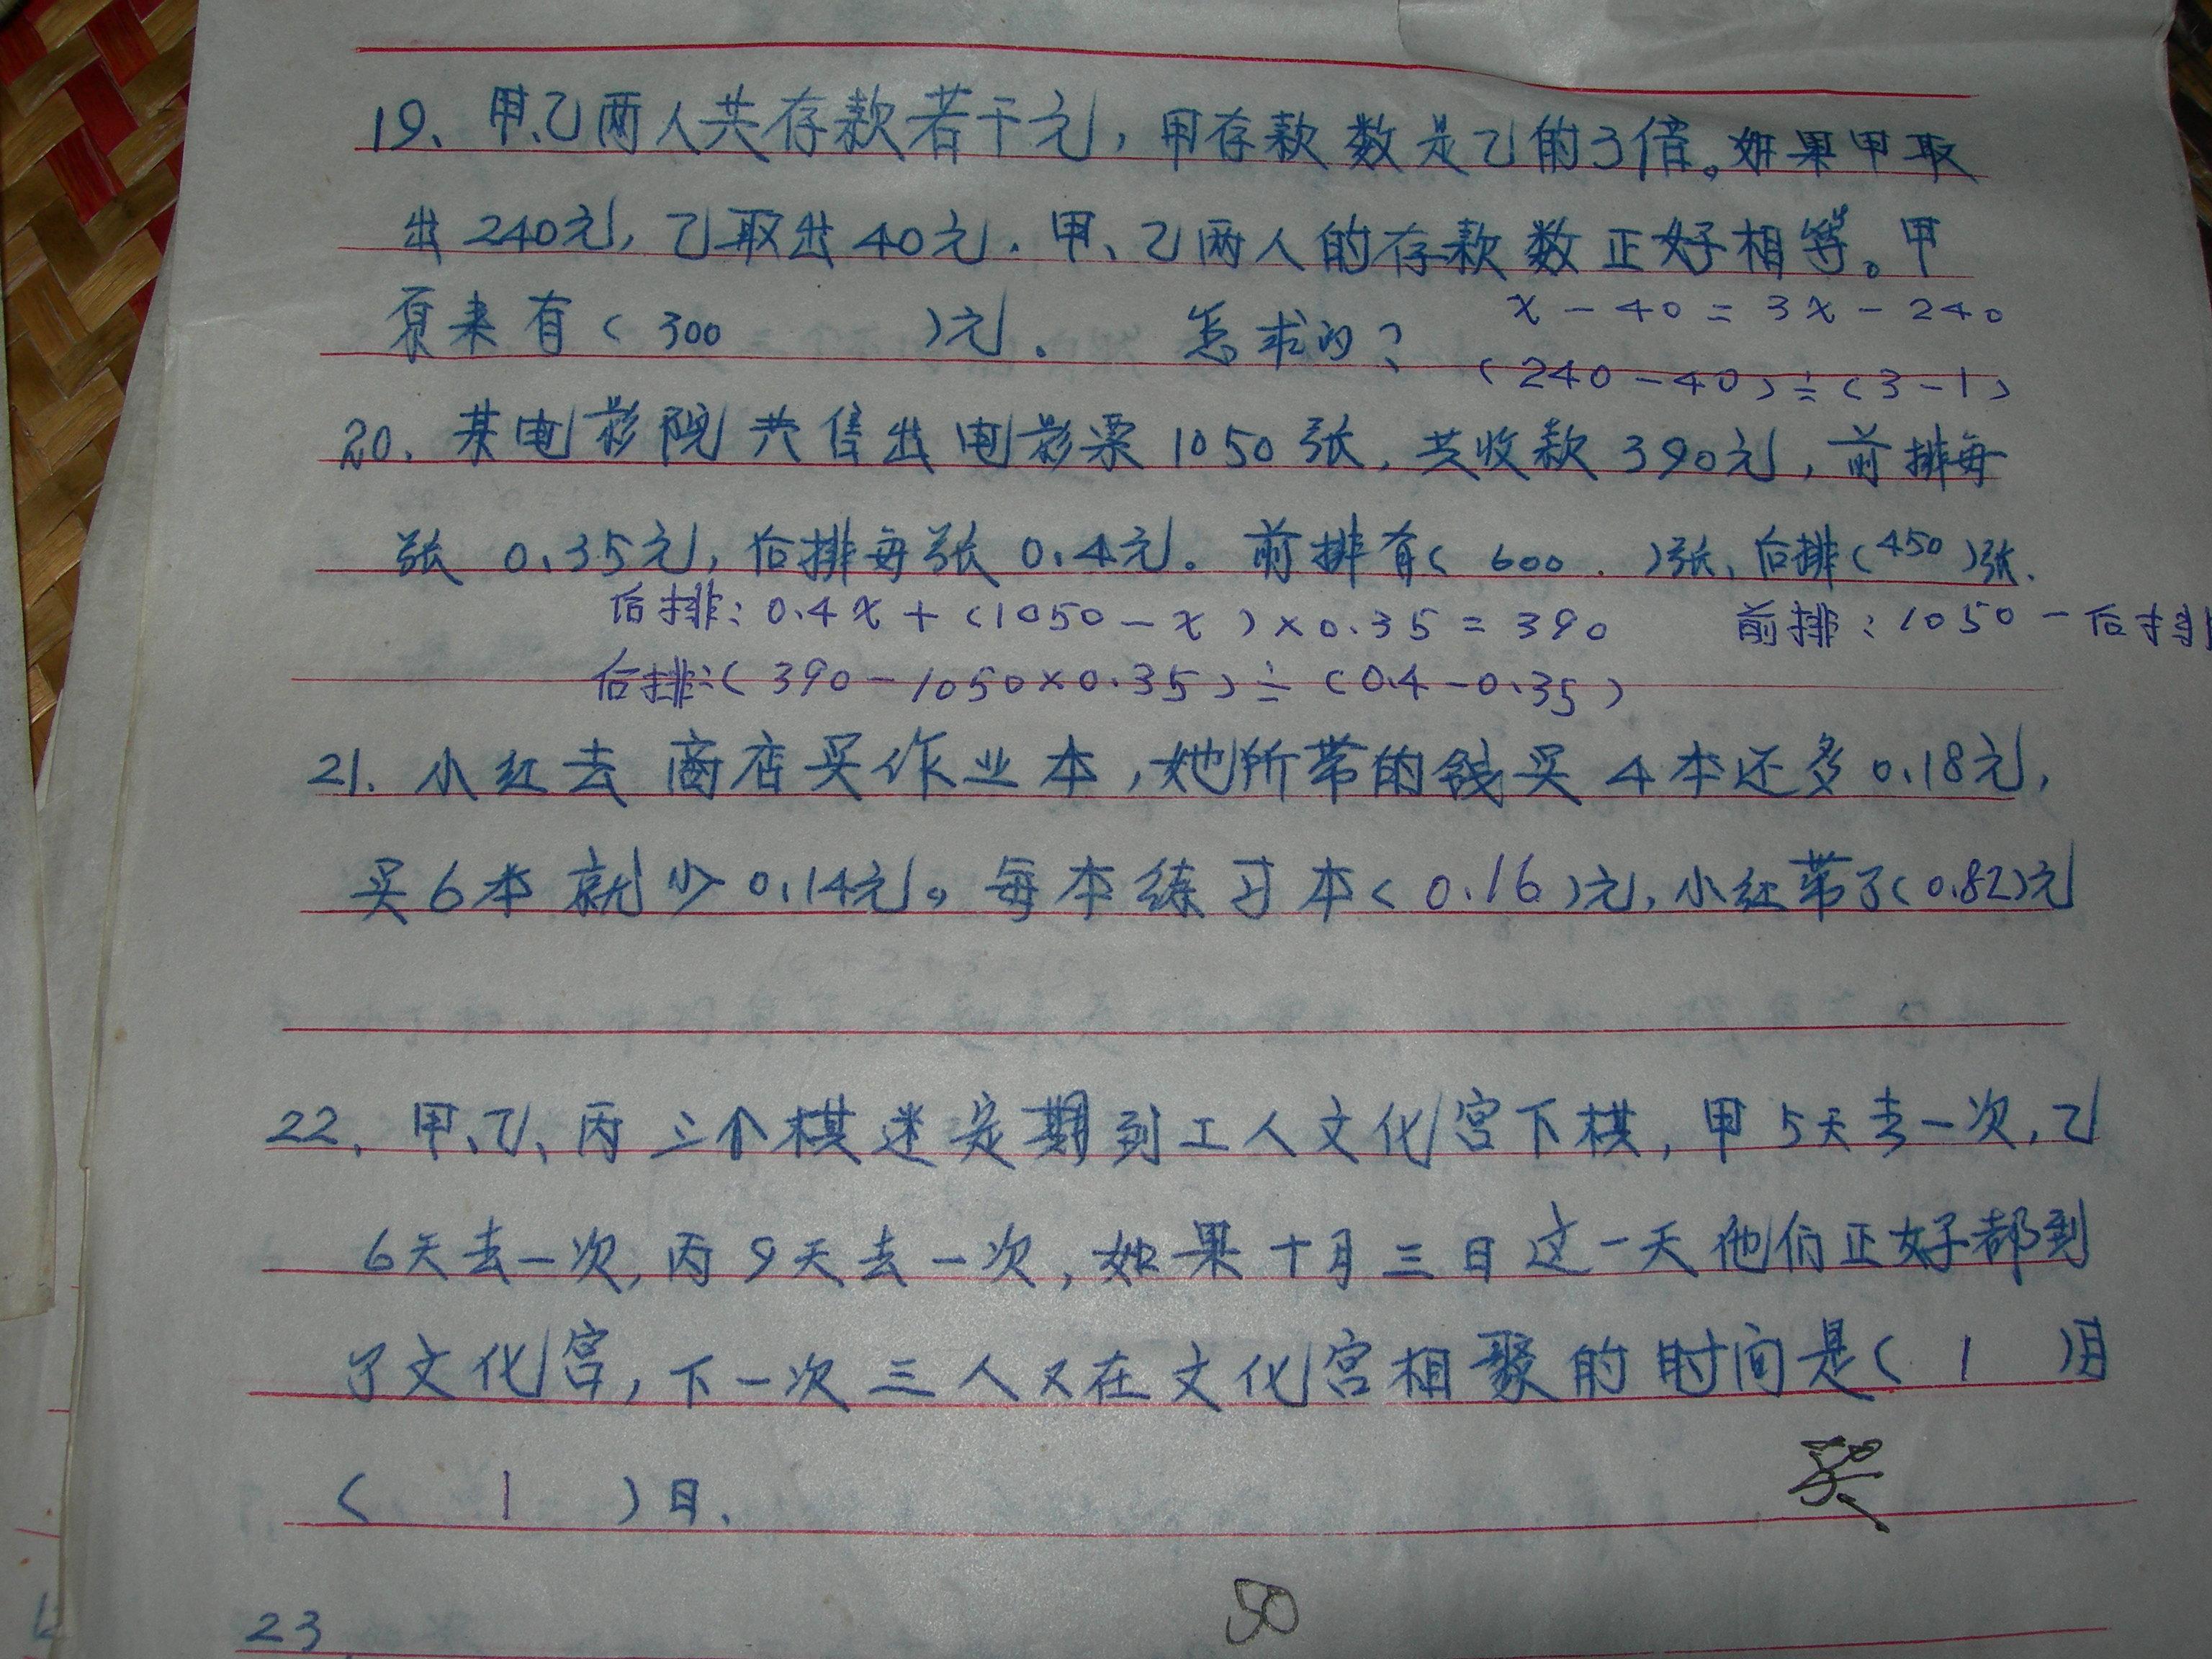 19、甲、乙两人共存款若干元，甲存款数是乙的3倍。如果甲取
出240元，乙取出40元．甲、乙两人的存款数正好相等。甲
原来有（300）元． 怎求的？
x－40＝3x－240
（240－40）÷（3－1）
20．某电影院共售出电影票1050张，共收款390元，前排每
张0.35元，后排每张0.4元。前排有（600．）张，后排（450）张．
后排：0.4x＋（1050－x）×0.35＝390 前排：1050－后排
后排：（390－1050×0.35）÷（0.4－0.35）
21．小红去商店买作业本，她所带的钱买4本还多0.18元，
买6本就少0.14元。每本练习本（0.16）元，小红带了（0.82）元
22、甲、乙、丙三个棋迷定期到工人文化宫下棋，甲5天去一次，乙
6天去一次，丙9天去一次，如果十月三日这一天他们正好都到
了文化宫，下一次三人又在文化宫相聚的时间是（1）月
（1）日．
50
23